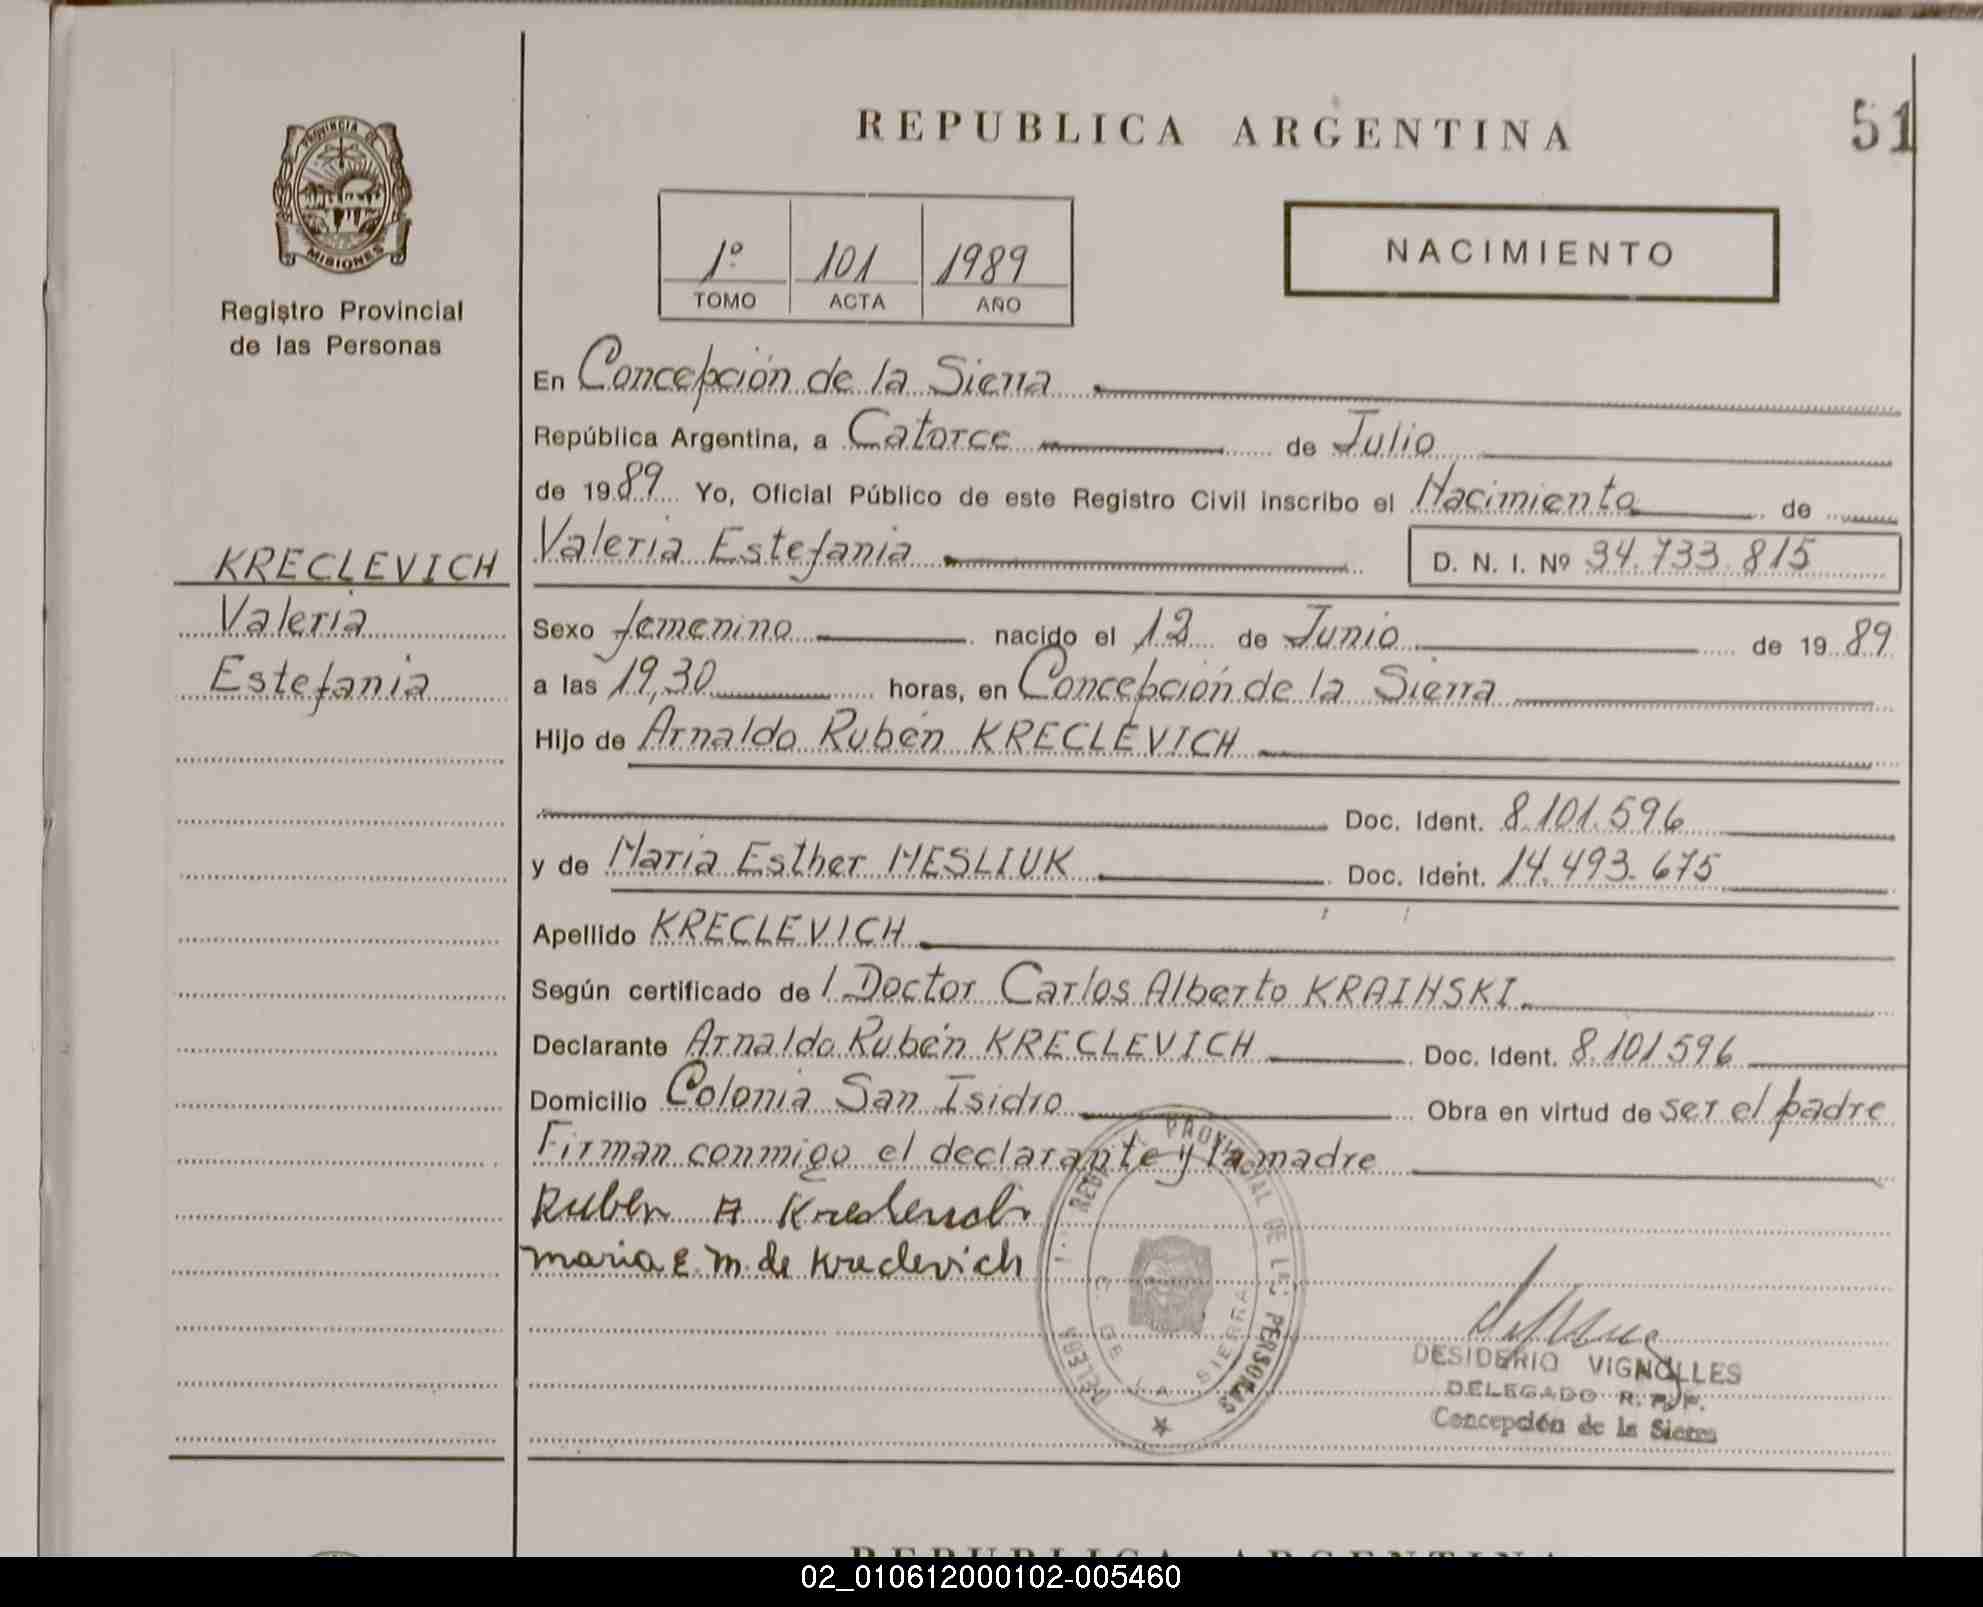 REPUBLICA ARGENTINA
51
PROVINCIA DE
MISIONES
Registro Provincial
de las Personas
1º 101 1989
TOMO ACTA AÑO
NACIMIENTO
En Concepción de la Sierra
República Argentina, a Catorce de Julio
de 1989 Yo, Oficial Público de este Registro Civil inscribo el Nacimiento de
Valeria Estefania D. N. I. Nº 34.733.815
KRECLEVICH
Valeria
Estefania
Sexo femenino nacido el 12 de Junio de 1989
a las 19,30 horas, en Concepción de la Sierra
Hijo de Arnaldo Rubén KRECLEVICH
Doc. Ident. 8.101.596
y de Maria Esther MESLIUK Doc. Ident. 14.493.675
Apellido KRECLEVICH
Según certificado de l Doctor Carlos Alberto KRAINSKI
Declarante Arnaldo Rubén KRECLEVICH Doc. Ident. 8.101596
Domicilio Colonia San Isidro Obra en virtud de ser el padre
Firman conmigo el declarante y la madre
Ruben A Kreclevich
maria E. m. de Kreclevich
PROVINCIAL DE LAS PERSONAS
DE LA SIERRA
DESIDERIO VIGNOLLES
DELEGADO R. P. P.
Concepción de la Sierra
REPUBLICA ARGENTINA
02_010612000102-005460